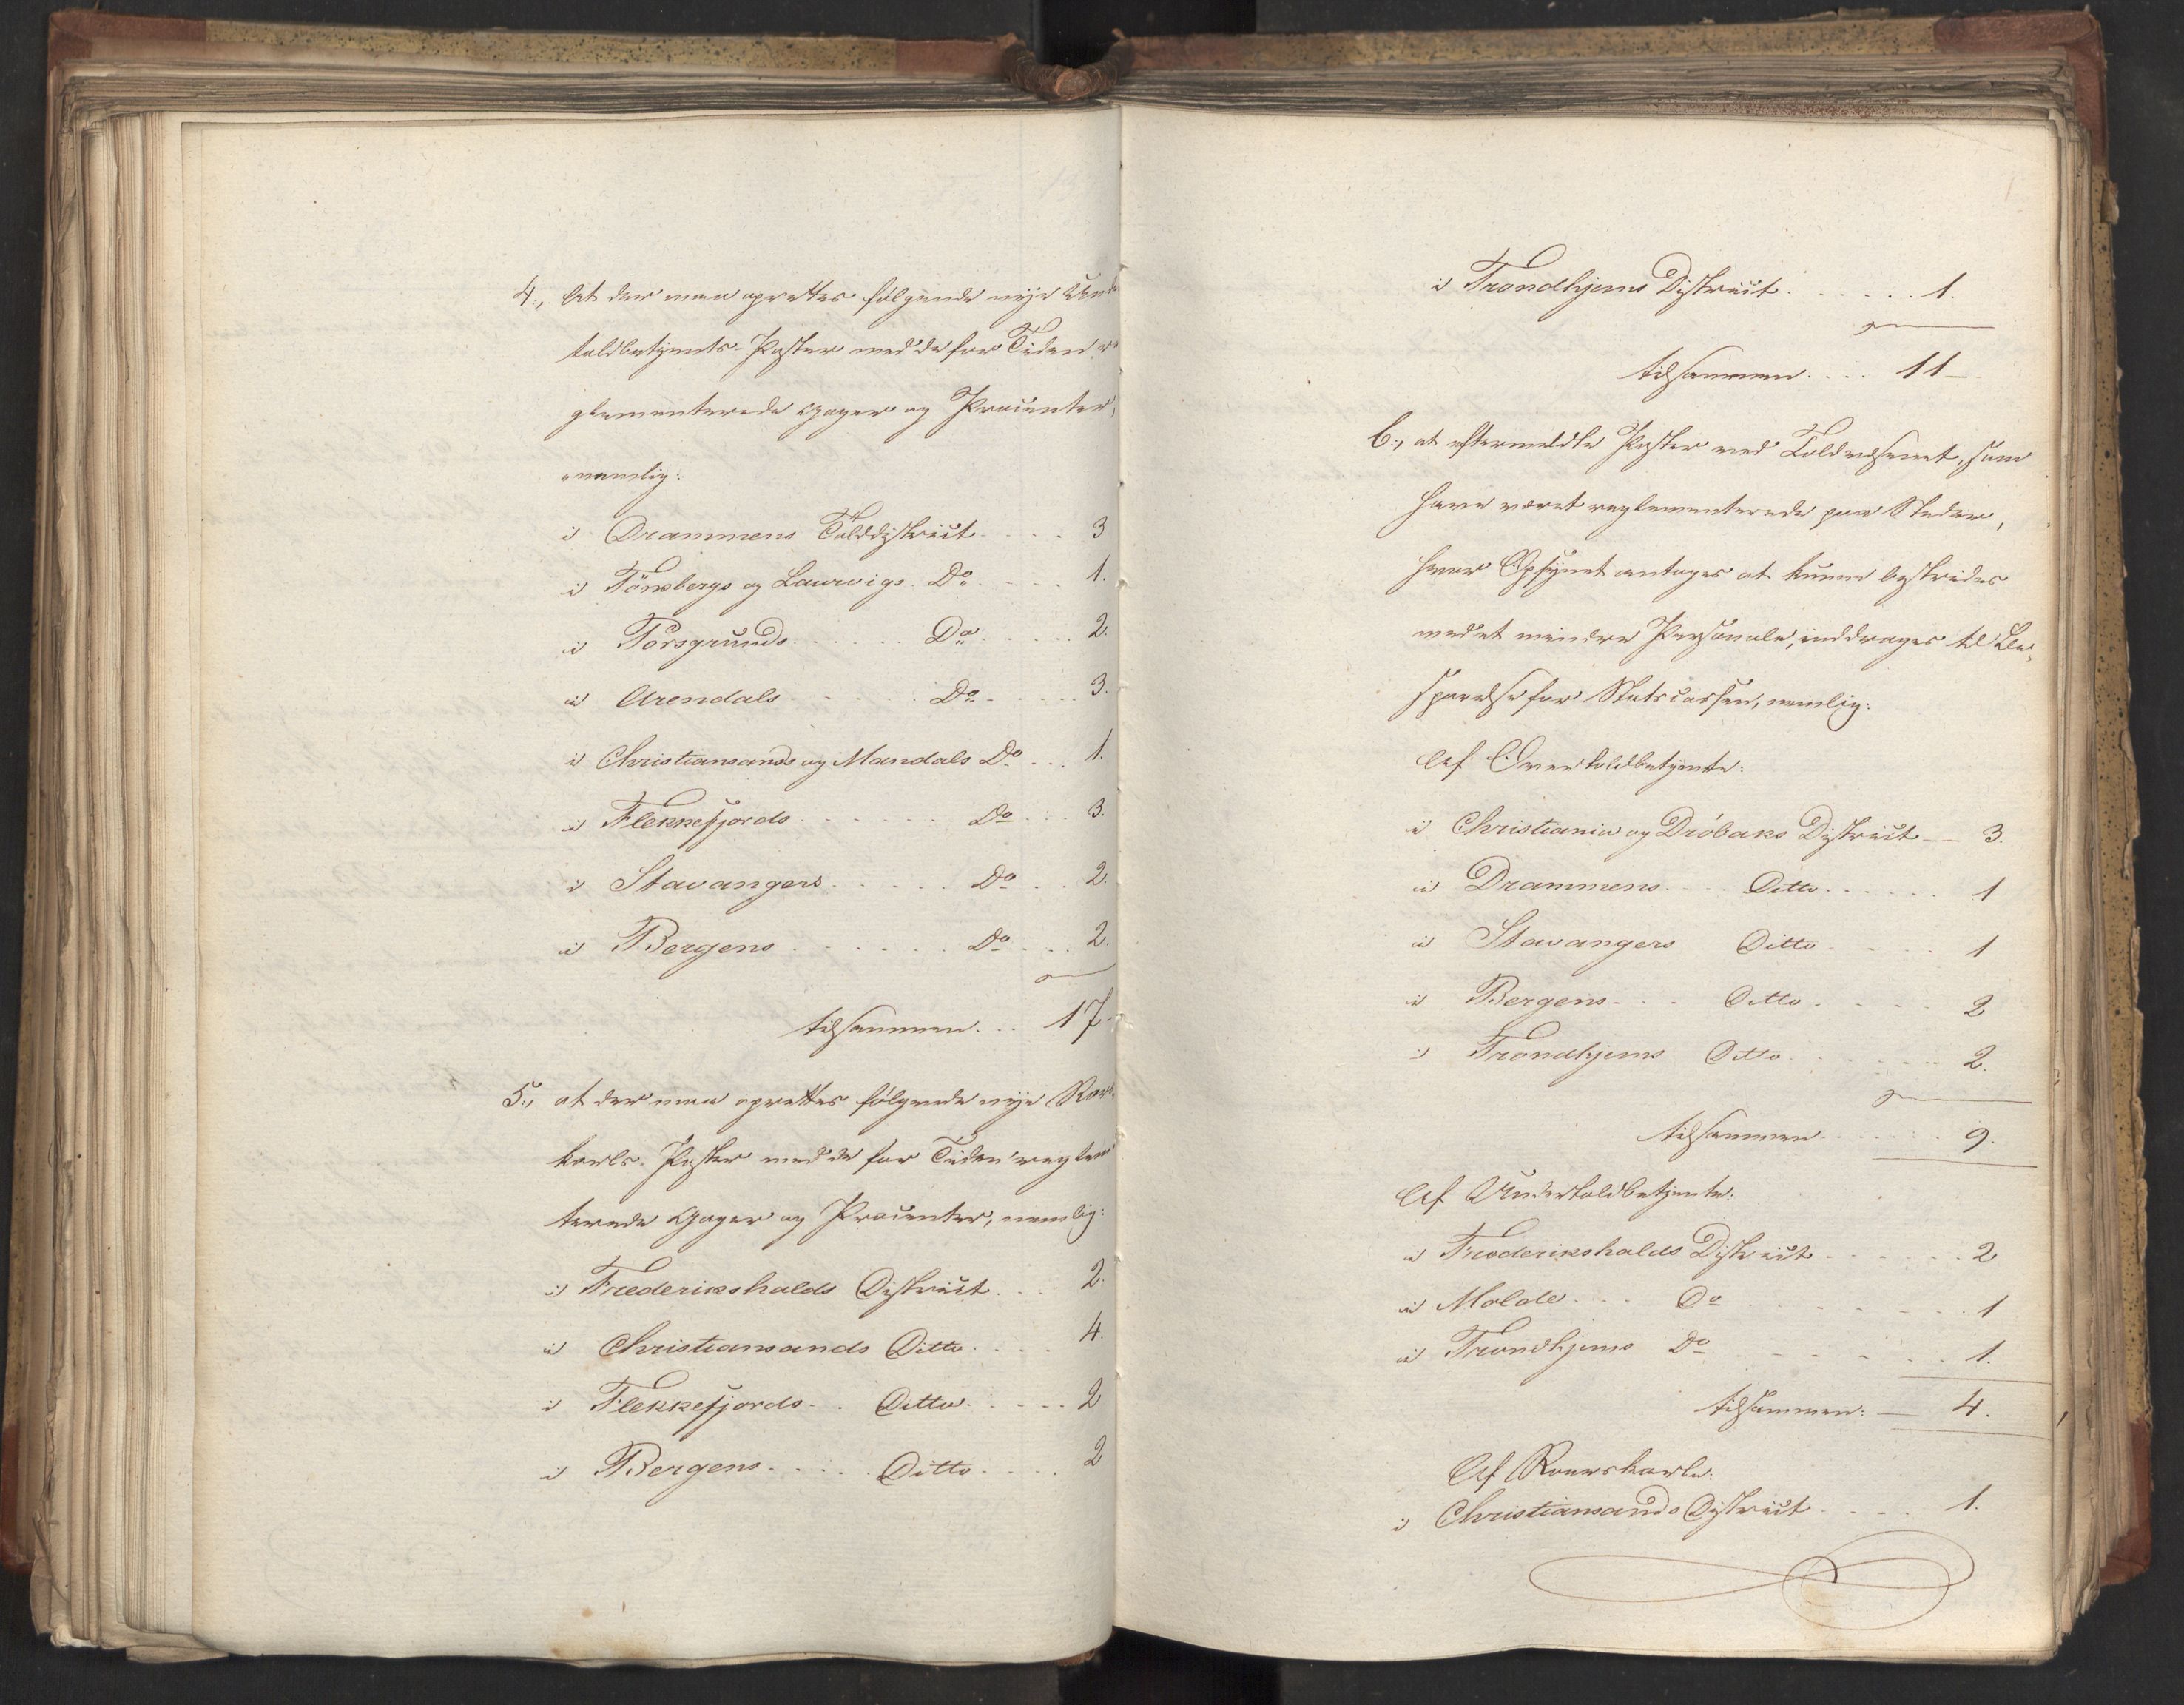 4., At der maa oprettes følgende nye Unde
toldbetjents-Poster med de for Tiden re
glementerede Gager og Procenter,
nemlig:
i Drammens Tolddistrict 3
i Tönsbergs og Laurvigs Do 1.
i Porsgrunds Do 2.
i Arendals Do 3.
i Christiansands og Mandals Do 1.
i Flekkefjords Do 3.
i Stavangers Do 2.
i Bergens Do 2.
tilsammen 17.
5., at der maa oprettes følgende nye Roers
karls-Poster med de for Tiden reglemen
terede Gager og Procenter, nemlig:
i Frederikshalds District 2.
i Christiansands Ditto 4.
i Flekkefjords Ditto 2
i Bergens Ditto 2
i Trondhjems District 1.
tilsammen 11
6., at eftermeldte Poster ved Toldvæsenet, som
have været reglementerede paa Steder,
hvor Opsynet antages at kunne bestrides
med et mindre Personale, inddrages til Be-
sparelse for Statscassen, nemlig:
Af Overtoldbetjente:
i Christiania og Dröbaks District 3.
i Drammens Ditto 1
i Stavangers Ditto 1
i Bergens Ditto 2
i Trondhjems Ditto 2.
tilsammen 9.
Af Undertoldbetjente:
i Frederikshalds District 2
i Molde Do 1
i Trondhjems Do 1.
tilsammen: 4.
Af Roerskarle:
i Christiansands District 1.